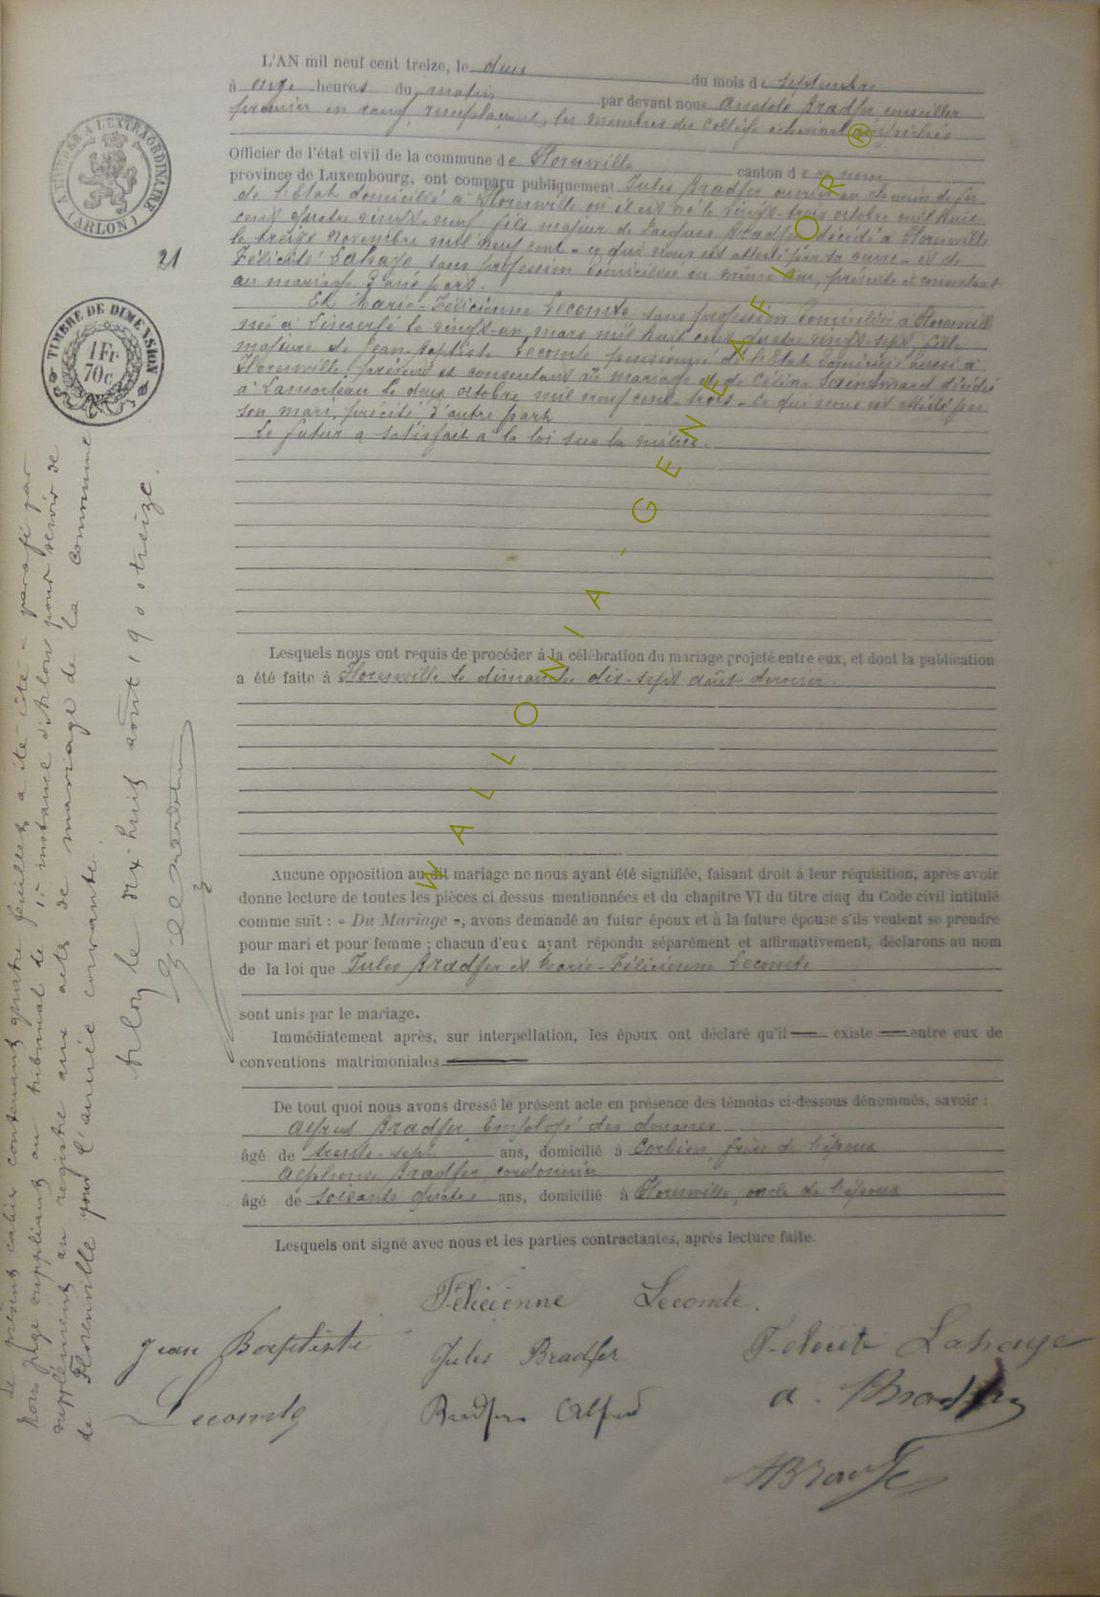 L'AN mil neuf cent treize, le deux du mois de septembre
à onze heures du matin par devant nous Anatole Bradfer, conseiller
premier en rang, remplaçant les membres du collège échevinal empêchés
Officier de l'état civil de la commune de Florenville canton de ce nom
province de Luxembourg, ont comparu publiquement Jules Bradfer ouvrier au chemin de fer
de l'Etat domicilié à Florenville où il est né le vingt-trois octobre mil huit
cent quatre vingt-neuf fils majeur de Jacques Bradfer décédé à Florenville
le treize novembre mil neuf cent - ce que nous est attesté par sa veuve - et de
Félicité Lahaye sans profession domiciliée au même lieu, présente et consentant
au mariage d'une part.
Et Marie-Félicienne Lecomte, sans profession domiciliée à Florenville
née à le vingt-un mars mil huit cent quatre vingt-sept fille
majeure de Jean-Baptiste Lecomte pensionné de l'Etat domicilié aussi à
Florenville, présent et consentant au mariage et de Célina décédée
à Lamorteau le deux octobre mil neuf cent-trois - ce qui nous est attesté par
son mari, précité d'autre part
Le futur a satisfait à la loi sur la milice.
Lesquels nous ont requis de procéder à la célébration du mariage projeté entre eux, et dont la publication
a été faite à Florenville le dimanche dix-sept août dernier.
Aucune opposition au dit mariage ne nous ayant été signifiée, faisant droit à leur réquisition, après avoir
donne lecture de toutes les pièces ci dessus mentionnées et du chapitre VI du titre cinq du Code civil intitulé
comme suit : « Du Mariage », avons demandé au futur époux et à la future épouse s'ils veulent se prendre
pour mari et pour femme ; chacun d'eux ayant répondu séparément et affirmativement, déclarons au nom
de la loi que Jules Bradfer et Marie-Félicienne Lecomte
sont unis par le mariage.
Immédiatement après, sur interpellation, les époux ont déclaré qu'il existe entre eux de
conventions matrimoniales
De tout quoi nous avons dressé le présent acte en présence des témoins ci-dessous dénommés, savoir :
Alfred Bradfer, Employé des douanes
âgé de trente-sept ans, domicilié à Corbion, frère de l'époux
Alphonse Bradfer, cordonnier
âgé de soixante quatre ans, domicilié à Florenville, oncle de l'époux
Lesquels ont signé avec nous et les parties contractantes, après lecture faite.
Félicienne Lecomte.
Jean Baptiste Jules Bradfer Félicité Lahaye
Lecomte Bradfer Alfred A. Bradfer
ABradfer
TIMBRE A L'EXTRAORDINAIRE
(ARLON)
21
TIMBRE DE DIMENSION
1 Fr
70 c
Le présent cahier contenant quatre feuilles a été coté & parafé par
Nous juge suppliant au tribunal de 1re instance d'Arlon pour servir de
supplément au registre aux actes de mariage de la commune
de Florenville pour l'année courante.
Arlon, le dix-huit août 190 treize.
WALLONIA-GENEAFLOR®